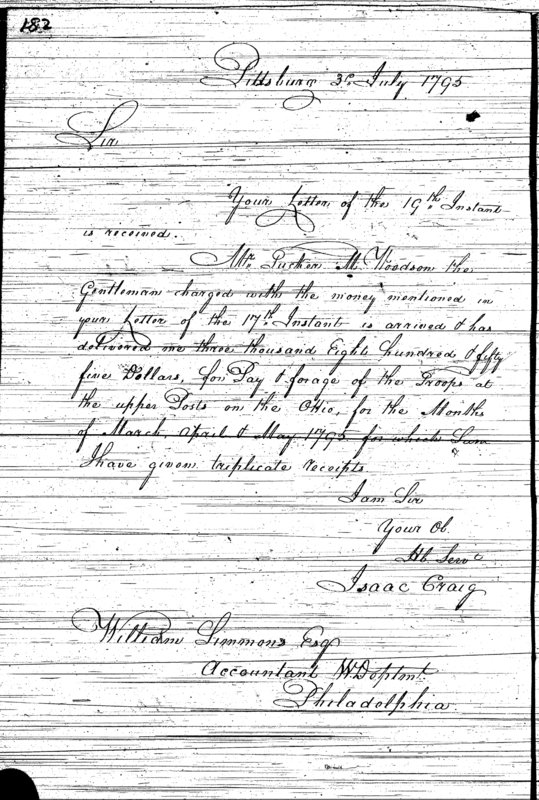 182
Pittsburg 3d July 1795
Sir
Your Letter of the 19th Instant
is received.
Mr. Tucker M. Woodson the
Gentleman charged with the money mentioned in
your Letter of the 17th Instant is arrived & has
delivered me three thousand Eight hundred & fifty
five Dollars, for Pay & forage of the Troops at
the upper Posts on the Ohio, for the Months
of March, April & May 1795 for which Sum
I have given triplicate receipts.
I am Sir
Your Ob.
Hb. Servt
Isaac Craig
William Simmons Esq
Accountant W Deptmt.
Philadelphia